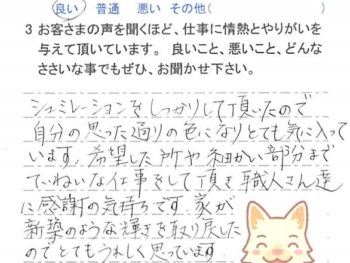 良い 普通 悪い その他(  )
3 お客さまの声を聞くほど、仕事に情熱とやりがいを
与えて頂いています。 良いこと、悪いこと、どんな
ささいな事でもぜひ、お聞かせ下さい。
シュミレーションをしっかりして頂いたので
自分の思った通りの色になりとても気に入って
います。希望した所や細かい部分まで
ていねいな仕事をして頂き職人さん達
に感謝の気持ちです。家が
新築のような輝きを取り戻した
のでとてもうれしく思っています